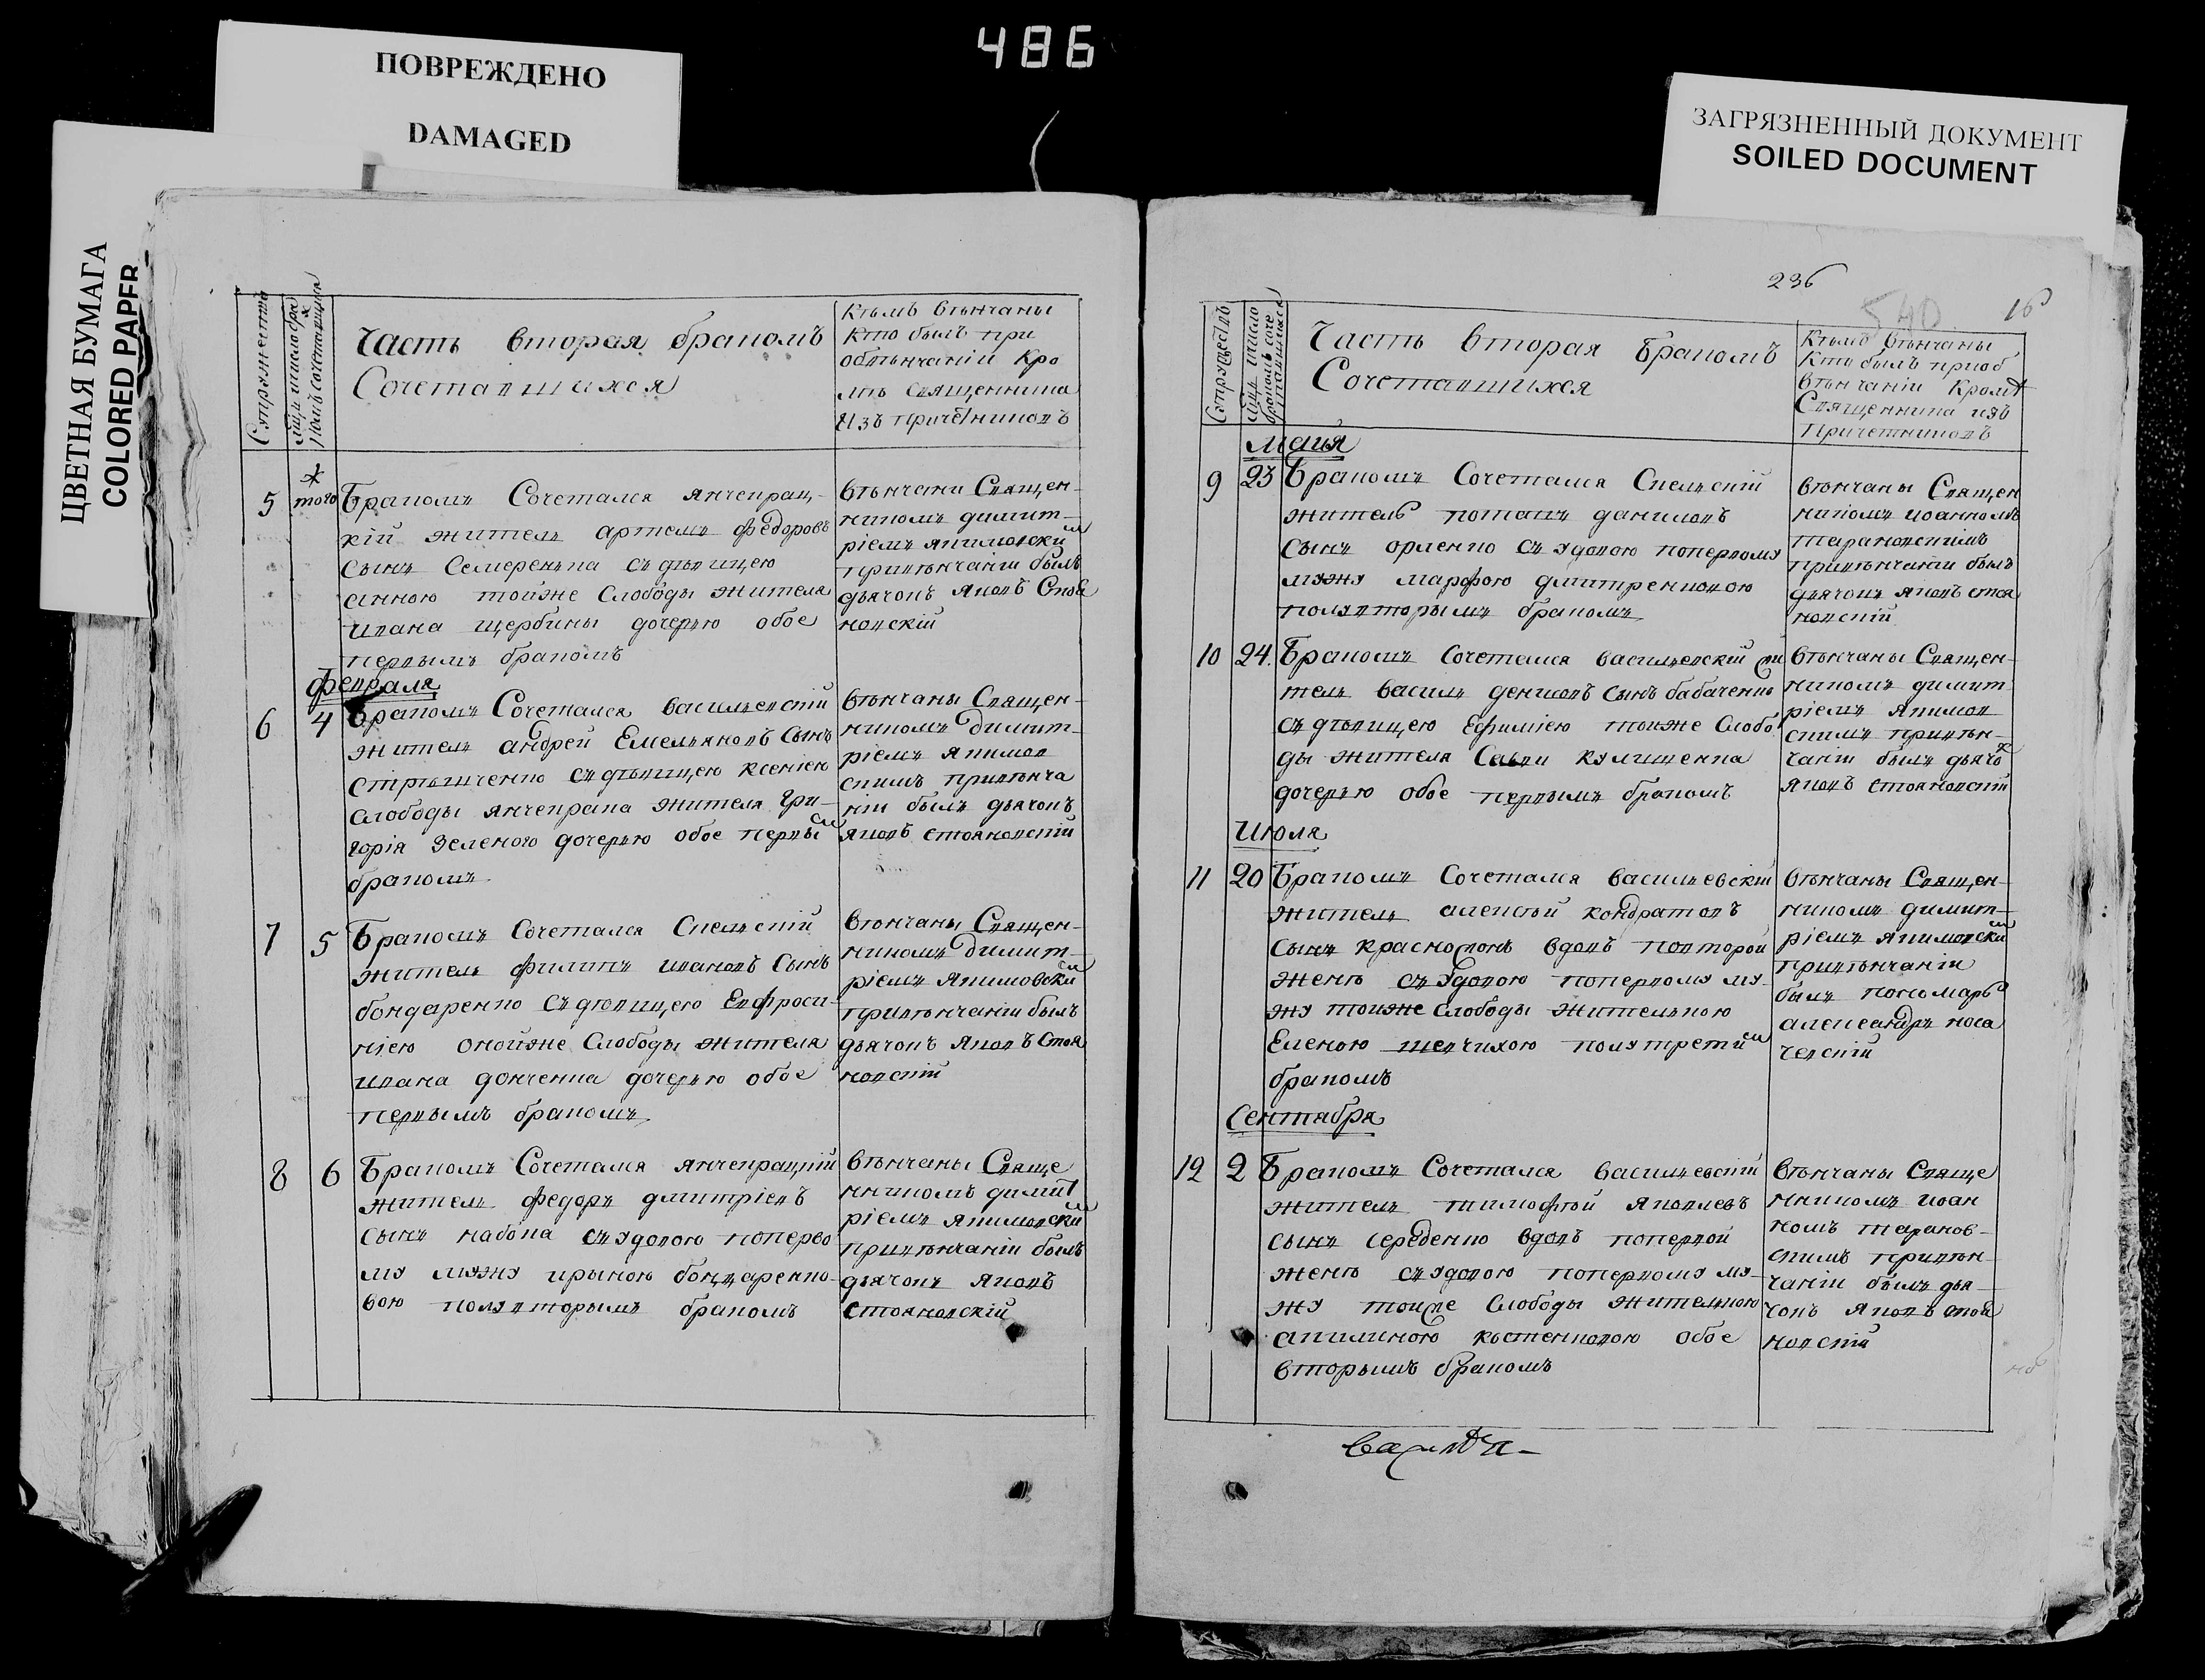 486
ПОВРЕЖДЕНО
DAMAGED
ЦВЕТНАЯ БУМАГА
COLORED PAPER
ЗАГРЯЗНЕННЫЙ ДОКУМЕНТ
SOILED DOCUMENT
Часть вторая бракомъ
Сочетавшихся
Кѣмъ вѣнчаны
кто былъ при
обвѣнчаніи Кро
мѣ Священника
Изъ причетниковъ
5 того Бракомъ Сочетался янчекрац-
кій жителъ артемъ федоровъ
сынъ Семеренка съ дѣвицею
анною тойже Слободы жителя
ивана щербины дочерью обое
первымъ бракомъ
вѣнчани Священ-
никомъ димит-
ріемъ якимовски м
привѣнчаніи былъ
дьячокъ яковъ Стоя
новскій
февраля
6 4 Бракомъ Сочетался васильевскій
жителъ андрей Емельяновъ Сынъ
Стрыжченко съ дѣвицею ксеніею
слободы янчекрака жителя гри-
горія Зеленого дочерью обое первы м
бракомъ
вѣнчаны Священ-
никомъ димит-
ріемъ якимов
скимъ привѣнча
ніи былъ дьячокъ
яковъ стояновскій
7 5 Бракомъ Сочетался Скельскій
жителъ филипъ ивановъ Сынъ
бондаренко съ дѣвицею Евфроси-
ніею онойже Слободы жителя
ивана донченка дочерью обое
первымъ бракомъ
вѣнчаны Священ-
никомъ димит-
ріемъ якимовски м
привѣнчаніи былъ
дьячокъ яковъ Стоя
новскій
8 6 Бракомъ Сочетался янчекрацкій
жителъ федоръ дмитріевъ
сынъ набока съ удовою поперво
му мужу ириною бондаренко-
вою полувторымъ бракомъ
вѣнчаны Свяще
нникомъ димит
ріемъ якимовски м
привѣнчаніи былъ
дьячокъ яковъ
стояновскій
236
540
Супружествъ
Часть вторая бракомъ
Сочетавшихся
Кѣмъ вѣнчаны
кто былъ приоб
вѣнчаніи Кромѣ
Священника изъ
Причетниковъ
маія
9 23 Бракомъ Сочетался Скельскій
житель потапъ даниловъ
сынъ орленко съ удовою поперво му
мужу марфою дмитренковою
полувторымъ бракомъ
вѣнчаны Священ
никомъ иоанномъ
тарановскимъ
привѣнчаніи былъ
дьячокъ яковъ стоя
новскій
10 24. Бракомъ Сочетался васильевскій жи
телъ василъ денисовъ сынъ бабаченко
съ дѣвицею Ефиміею тоиже Слобо
ды жителя Савы кулишенка
дочерью обое первымъ бракомъ
вѣнчаны Священ-
никомъ димит
ріемъ якимов
скимъ привѣн-
чаніи былъ дьячо к
яковъ стояновскій
Июля
11 20 Бракомъ Сочетался васильевскій
жителъ алексѣй кондратовъ
сынъ красноконъ вдовъ повторой
женѣ съ удовою поперво му му-
жу тоиже Слободы жителькою
Еленою шевчихою полутрети м
бракомъ
вѣнчаны Священ-
никомъ димит-
ріемъ якимовски м
привѣнчаніи
былъ пономарь
александръ носа
чевскій
Сентября
12 2 Бракомъ Сочетался васильевскій
жителъ тимофѣй яковлевъ
сынъ середенко вдовъ поперво й
женѣ съ удовою поперво му му-
жу тоиже Слободы жителькою
акилиною костенковою обое
вторымъ бракомъ
вѣнчаны Свяще
нникомъ иоан
номъ таранов-
скимъ привѣн-
чаніи былъ дья-
чокъ яковъ стоя
новскій